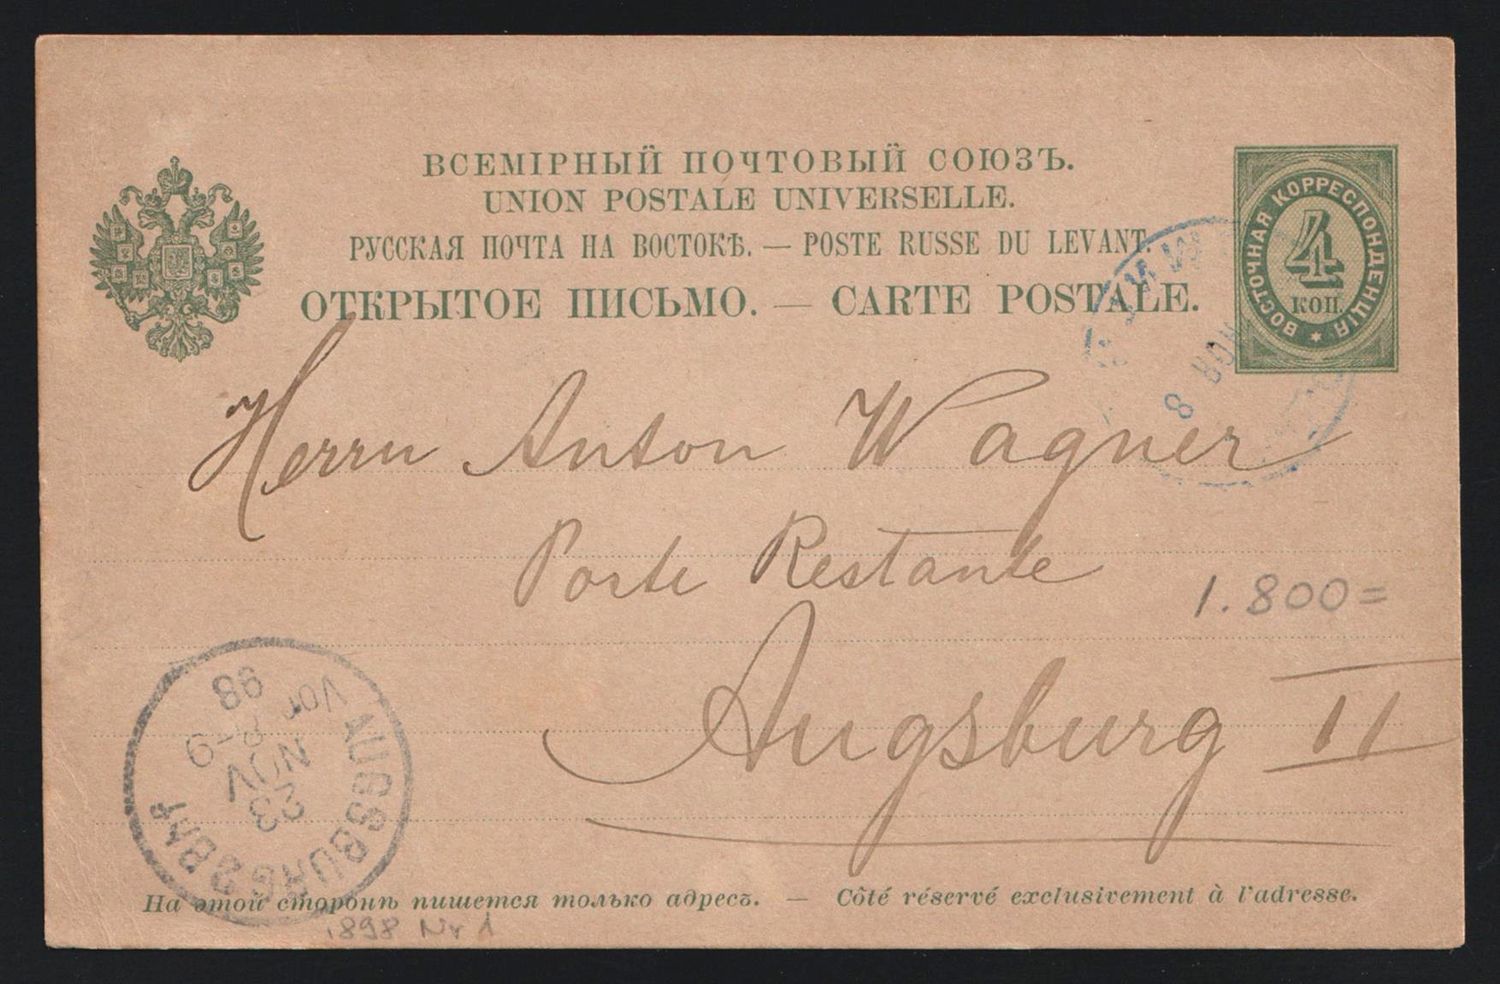 ВСЕМІРНЫЙ ПОЧТОВЫЙ СОЮЗЪ.
UNION POSTALE UNIVERSELLE.
РУССКАЯ ПОЧТА НА ВОСТОКѢ. — POSTE RUSSE DU LEVANT
ОТКРЫТОЕ ПИСЬМО. — CARTE POSTALE.
ВОСТОЧНАЯ КОРРЕСПОНДЕНЦІЯ
4
КОП.
8 НОЯ
Herrn Anton Wagner
Poste Restante
1.800=
Augsburg II
AUGSBURG 2 BHF
23
NOV
Vor 8-9
98
На этой сторонѣ пишется только адресъ. — Côté réservé exclusivement à l'adresse.
1898 Nr 1